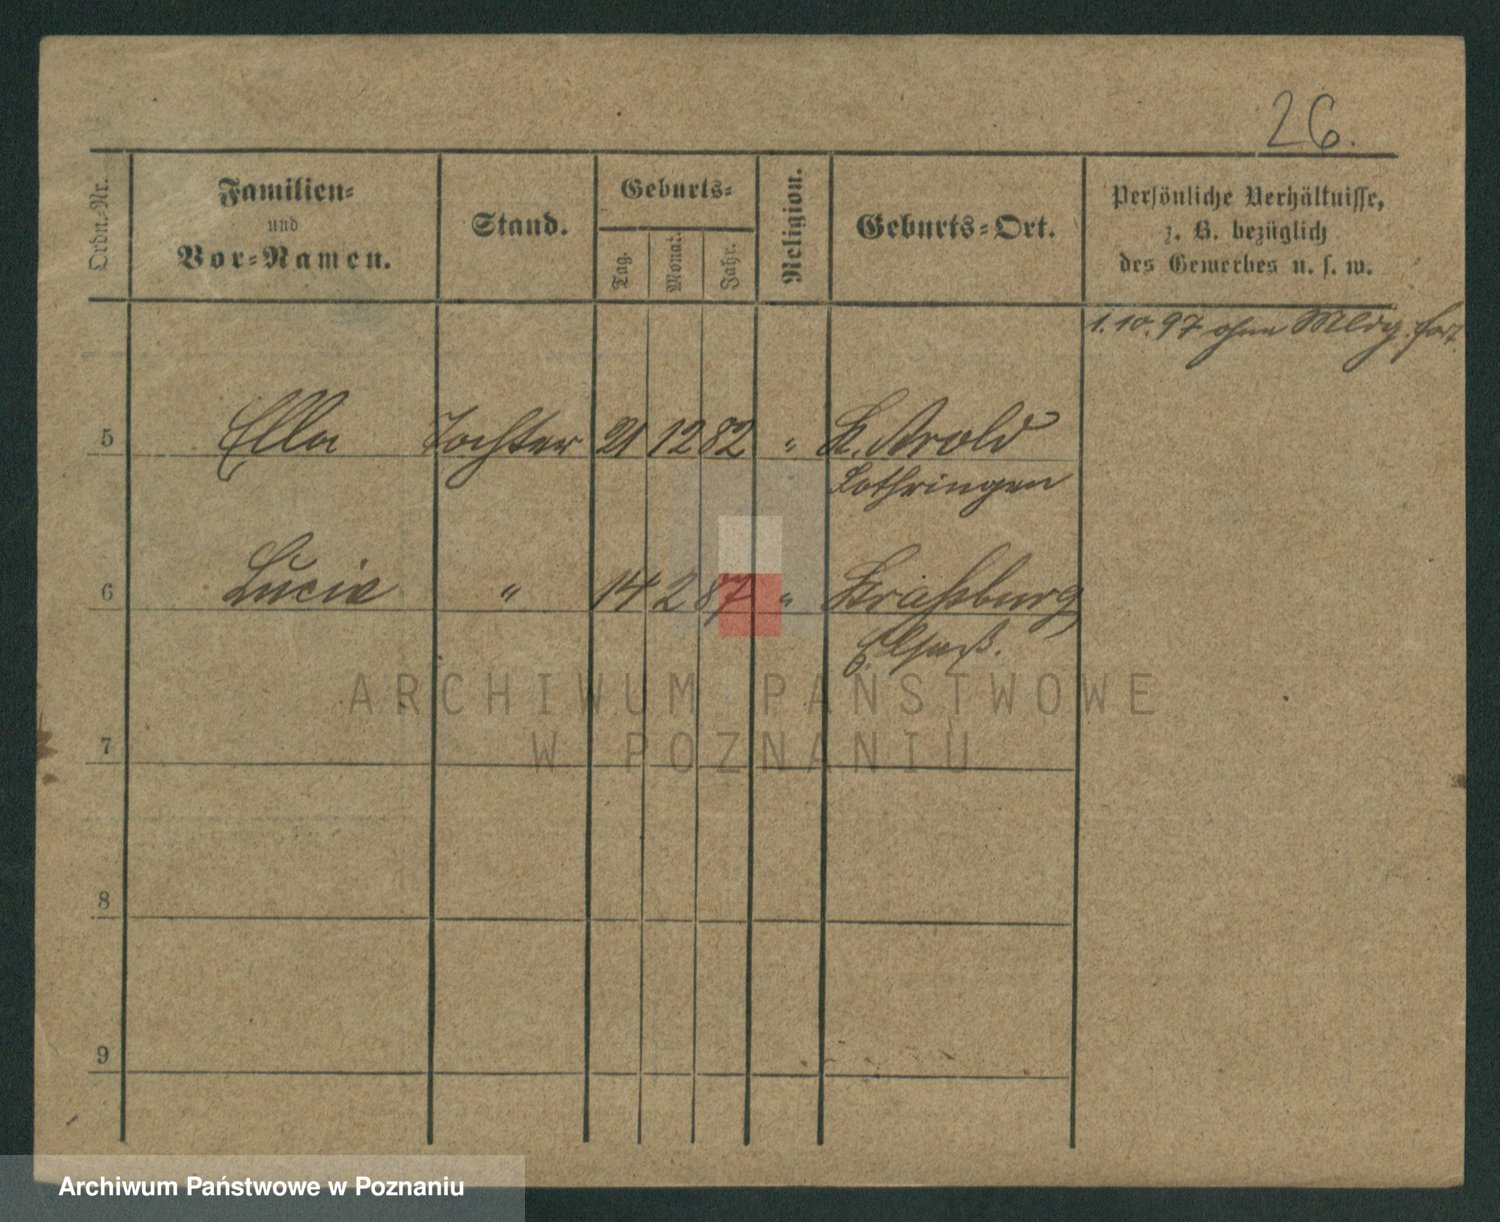 26.
Ordn.-Nr.
Familien-
und
Vor-Namen.
Stand.
Geburts-
Tag.
Monat.
Jahr.
Religion.
Geburts-Ort.
Persönliche Verhältnisse,
z. B. bezüglich
des Gewerbes u. s. w.
1.10.97 ohne Mldg. fort.
5 Ella Tochter 21 12 82 " St. Avold
Lothringen
6 Lucie " 14 2 87 " Straßburg
Elsaß.
7
8
9
ARCHIWUM PAŃSTWOWE
W POZNANIU
Archiwum Państwowe w Poznaniu